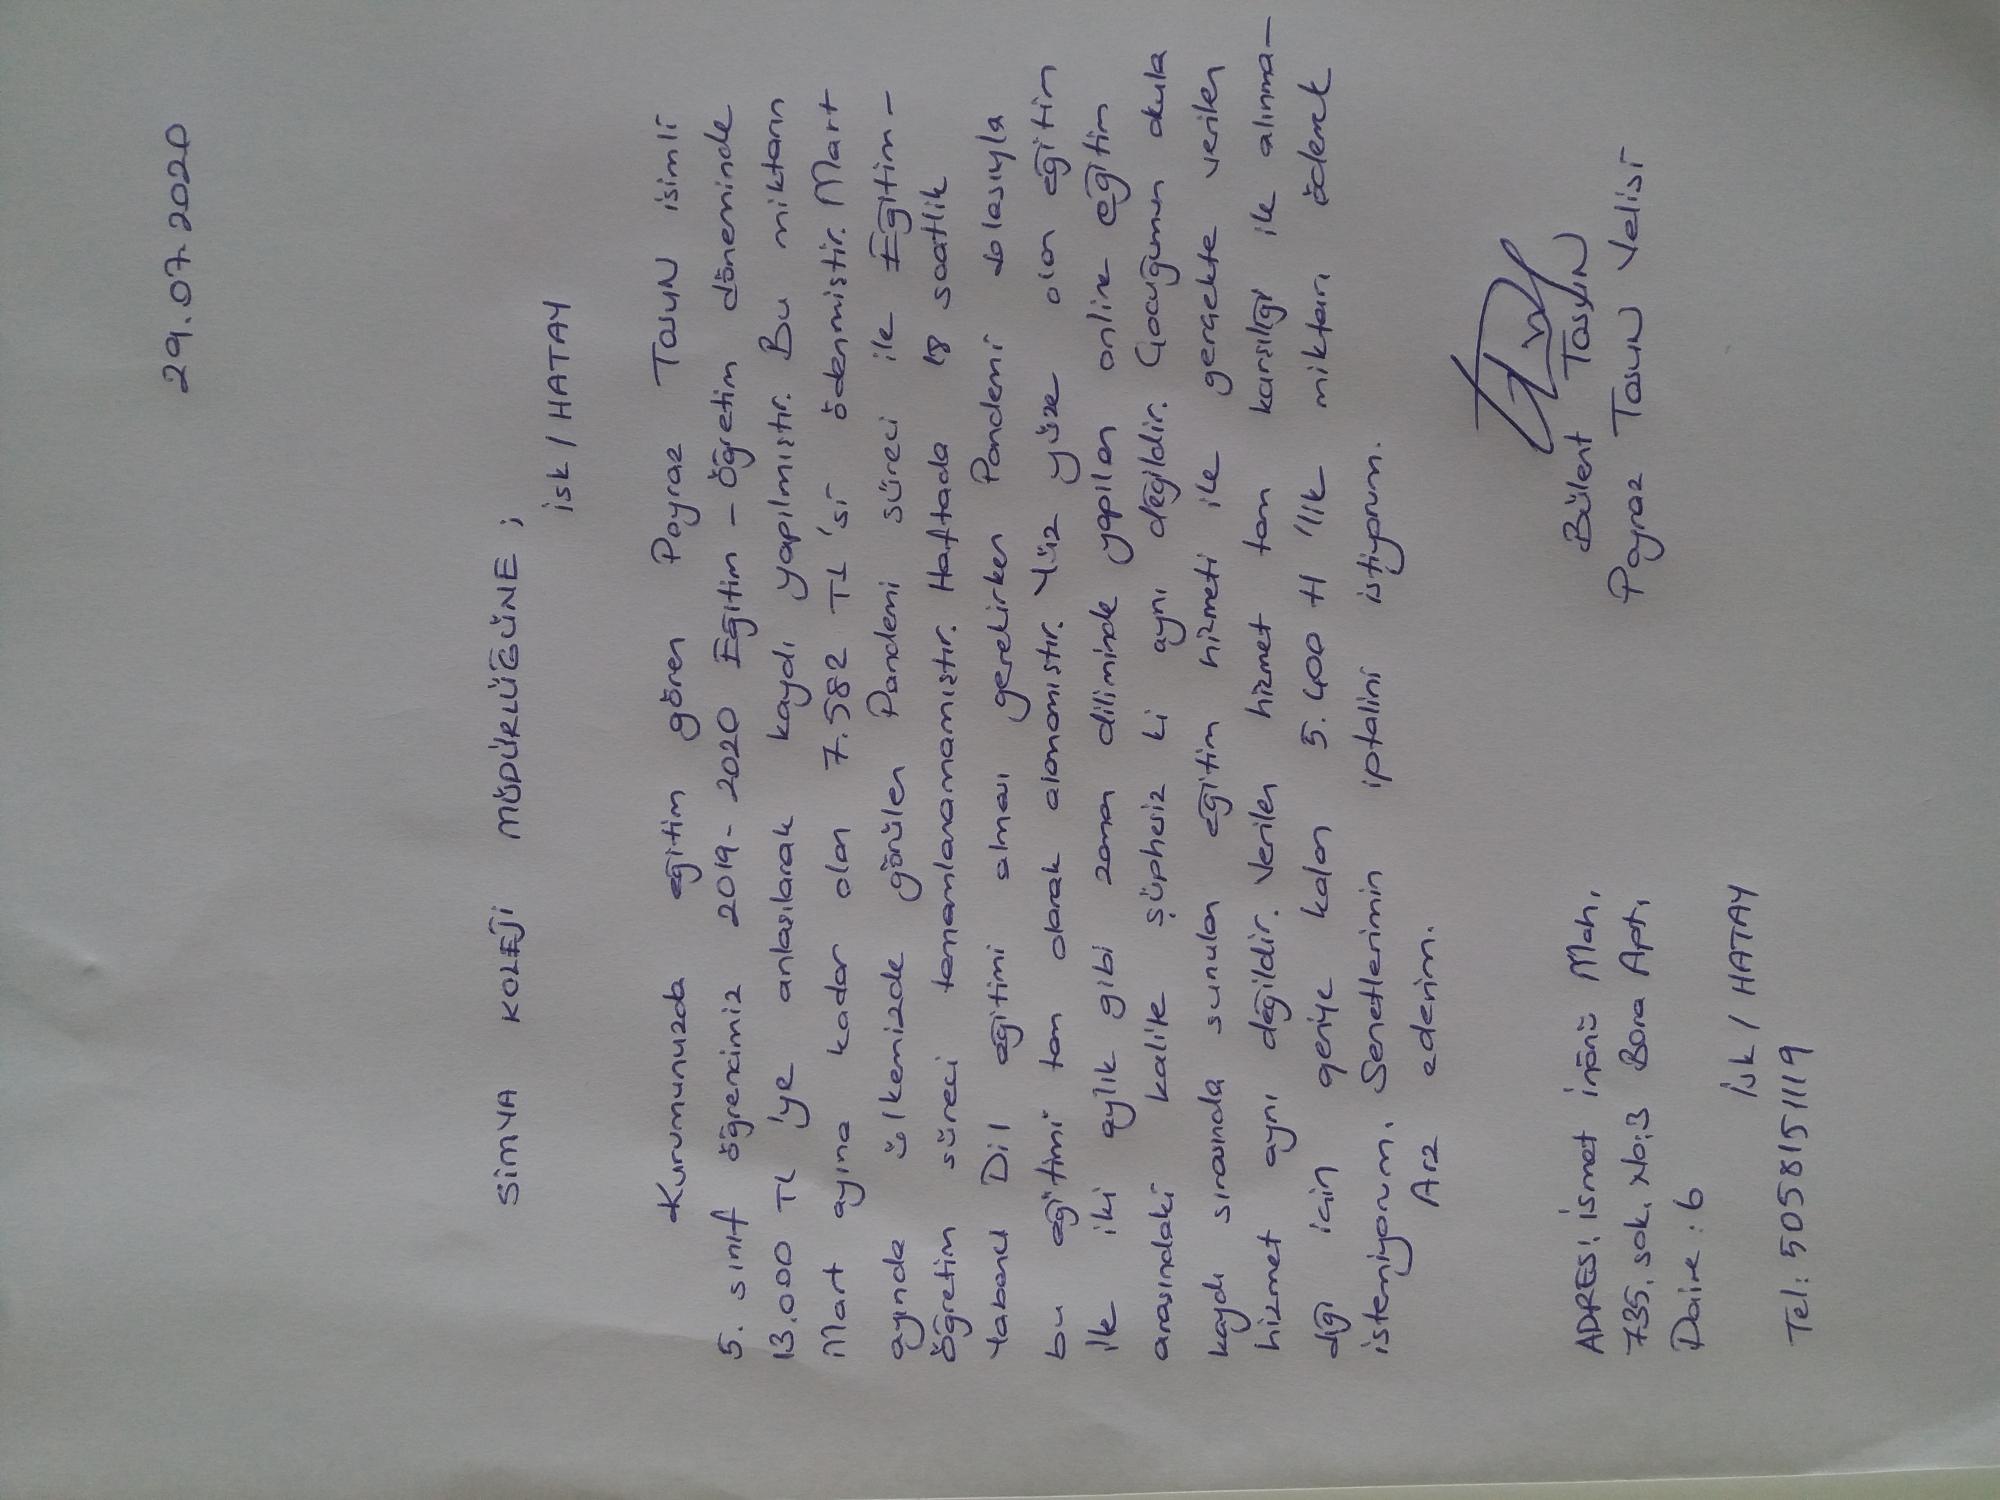 29.07.2020
SİMYA KOLEJİ MÜDÜRLÜĞÜNE ;
isk / HATAY
Kurumunuzda eğitim gören Poyraz TosuN isimli
5. sınıf öğrencimiz 2019-2020 Eğitim - Öğretim döneminde
13.000 TL 'ye anlaşılarak kaydı yapılmıştır. Bu miktarın
Mart ayına kadar olan 7.582 TL 'si ödenmiştir. Mart
ayında ülkemizde görülen Pandemi süreci ile Eğitim -
Öğretim süreci tamamlanamamıştır. Haftada 18 saatlik
Yabancı Dil eğitimi alması gerekirken Pandemi dolasıyla
bu eğitimi tam olarak alamamıştır. Yüz yüze olan eğitim
ilk iki aylık gibi zaman diliminde yapılan online eğitim
arasındaki kalite şüphesiz ki aynı değildir. Çocuğumun okula
kaydı sırasında sunulan eğitim hizmeti ile gerçekte verilen
hizmet aynı değildir. Verilen hizmet tam karşılığı ile alınma-
dığı için geriye kalan 5.400 tl 'lik miktarı ödemek
istemiyorum. Senetlerimin iptalini istiyorum.
Arz ederim.
Bülent TosuN
Poyraz TosuN Velisi
ADRES: ismet inönü Mah.
735. sok. No:3 Bora Aptı.
Daire : 6
İsk / HATAY
Tel: 5058151119